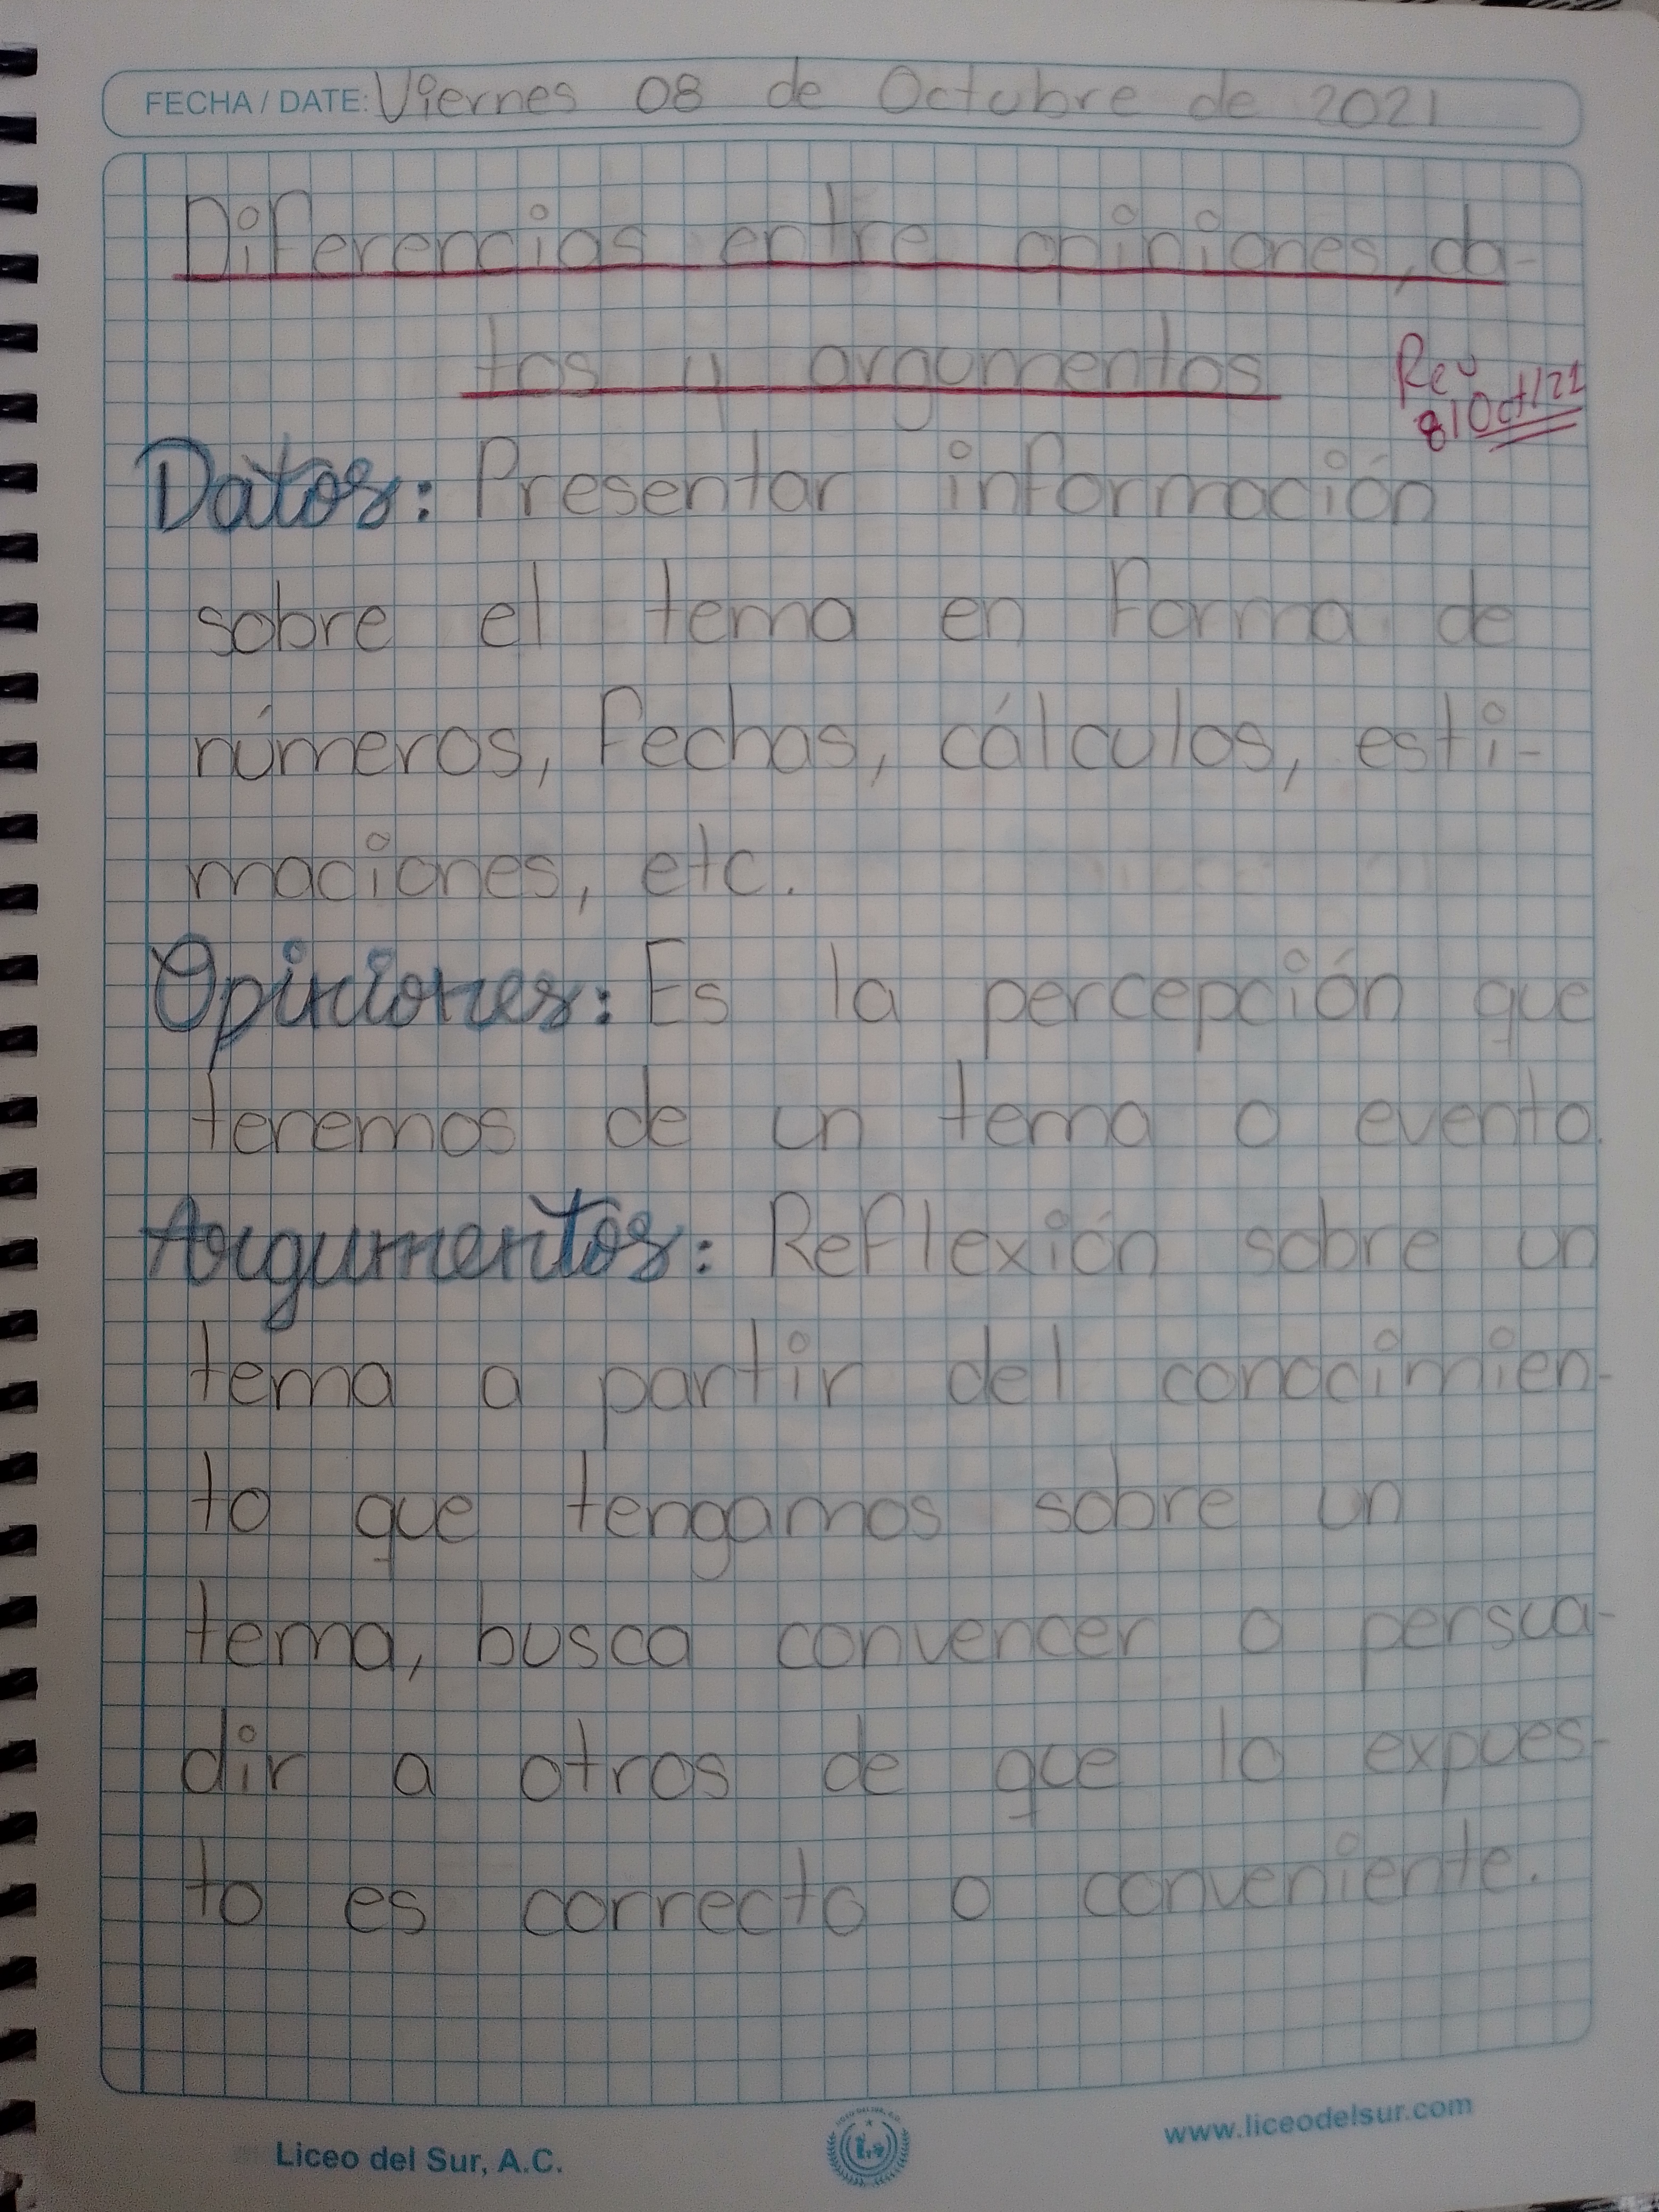 FECHA / DATE: Viernes 08 de Octubre de 2021
Diferencias entre opiniones, da-
tos y argumentos
Rev
8/Oct/21
Datos: Presentar información
sobre el tema en forma de
números, fechas, cálculos, esti-
maciones, etc.
Opiniones: Es la percepción que
teremos de un tema o evento.
Argumentos: Reflexión sobre un
tema a partir del conocimien-
to que tengamos sobre un
tema, busca convencer o persua-
dir a otros de que lo expues-
to es correcto o conveniente.
Liceo del Sur, A.C.
www.liceodelsur.com